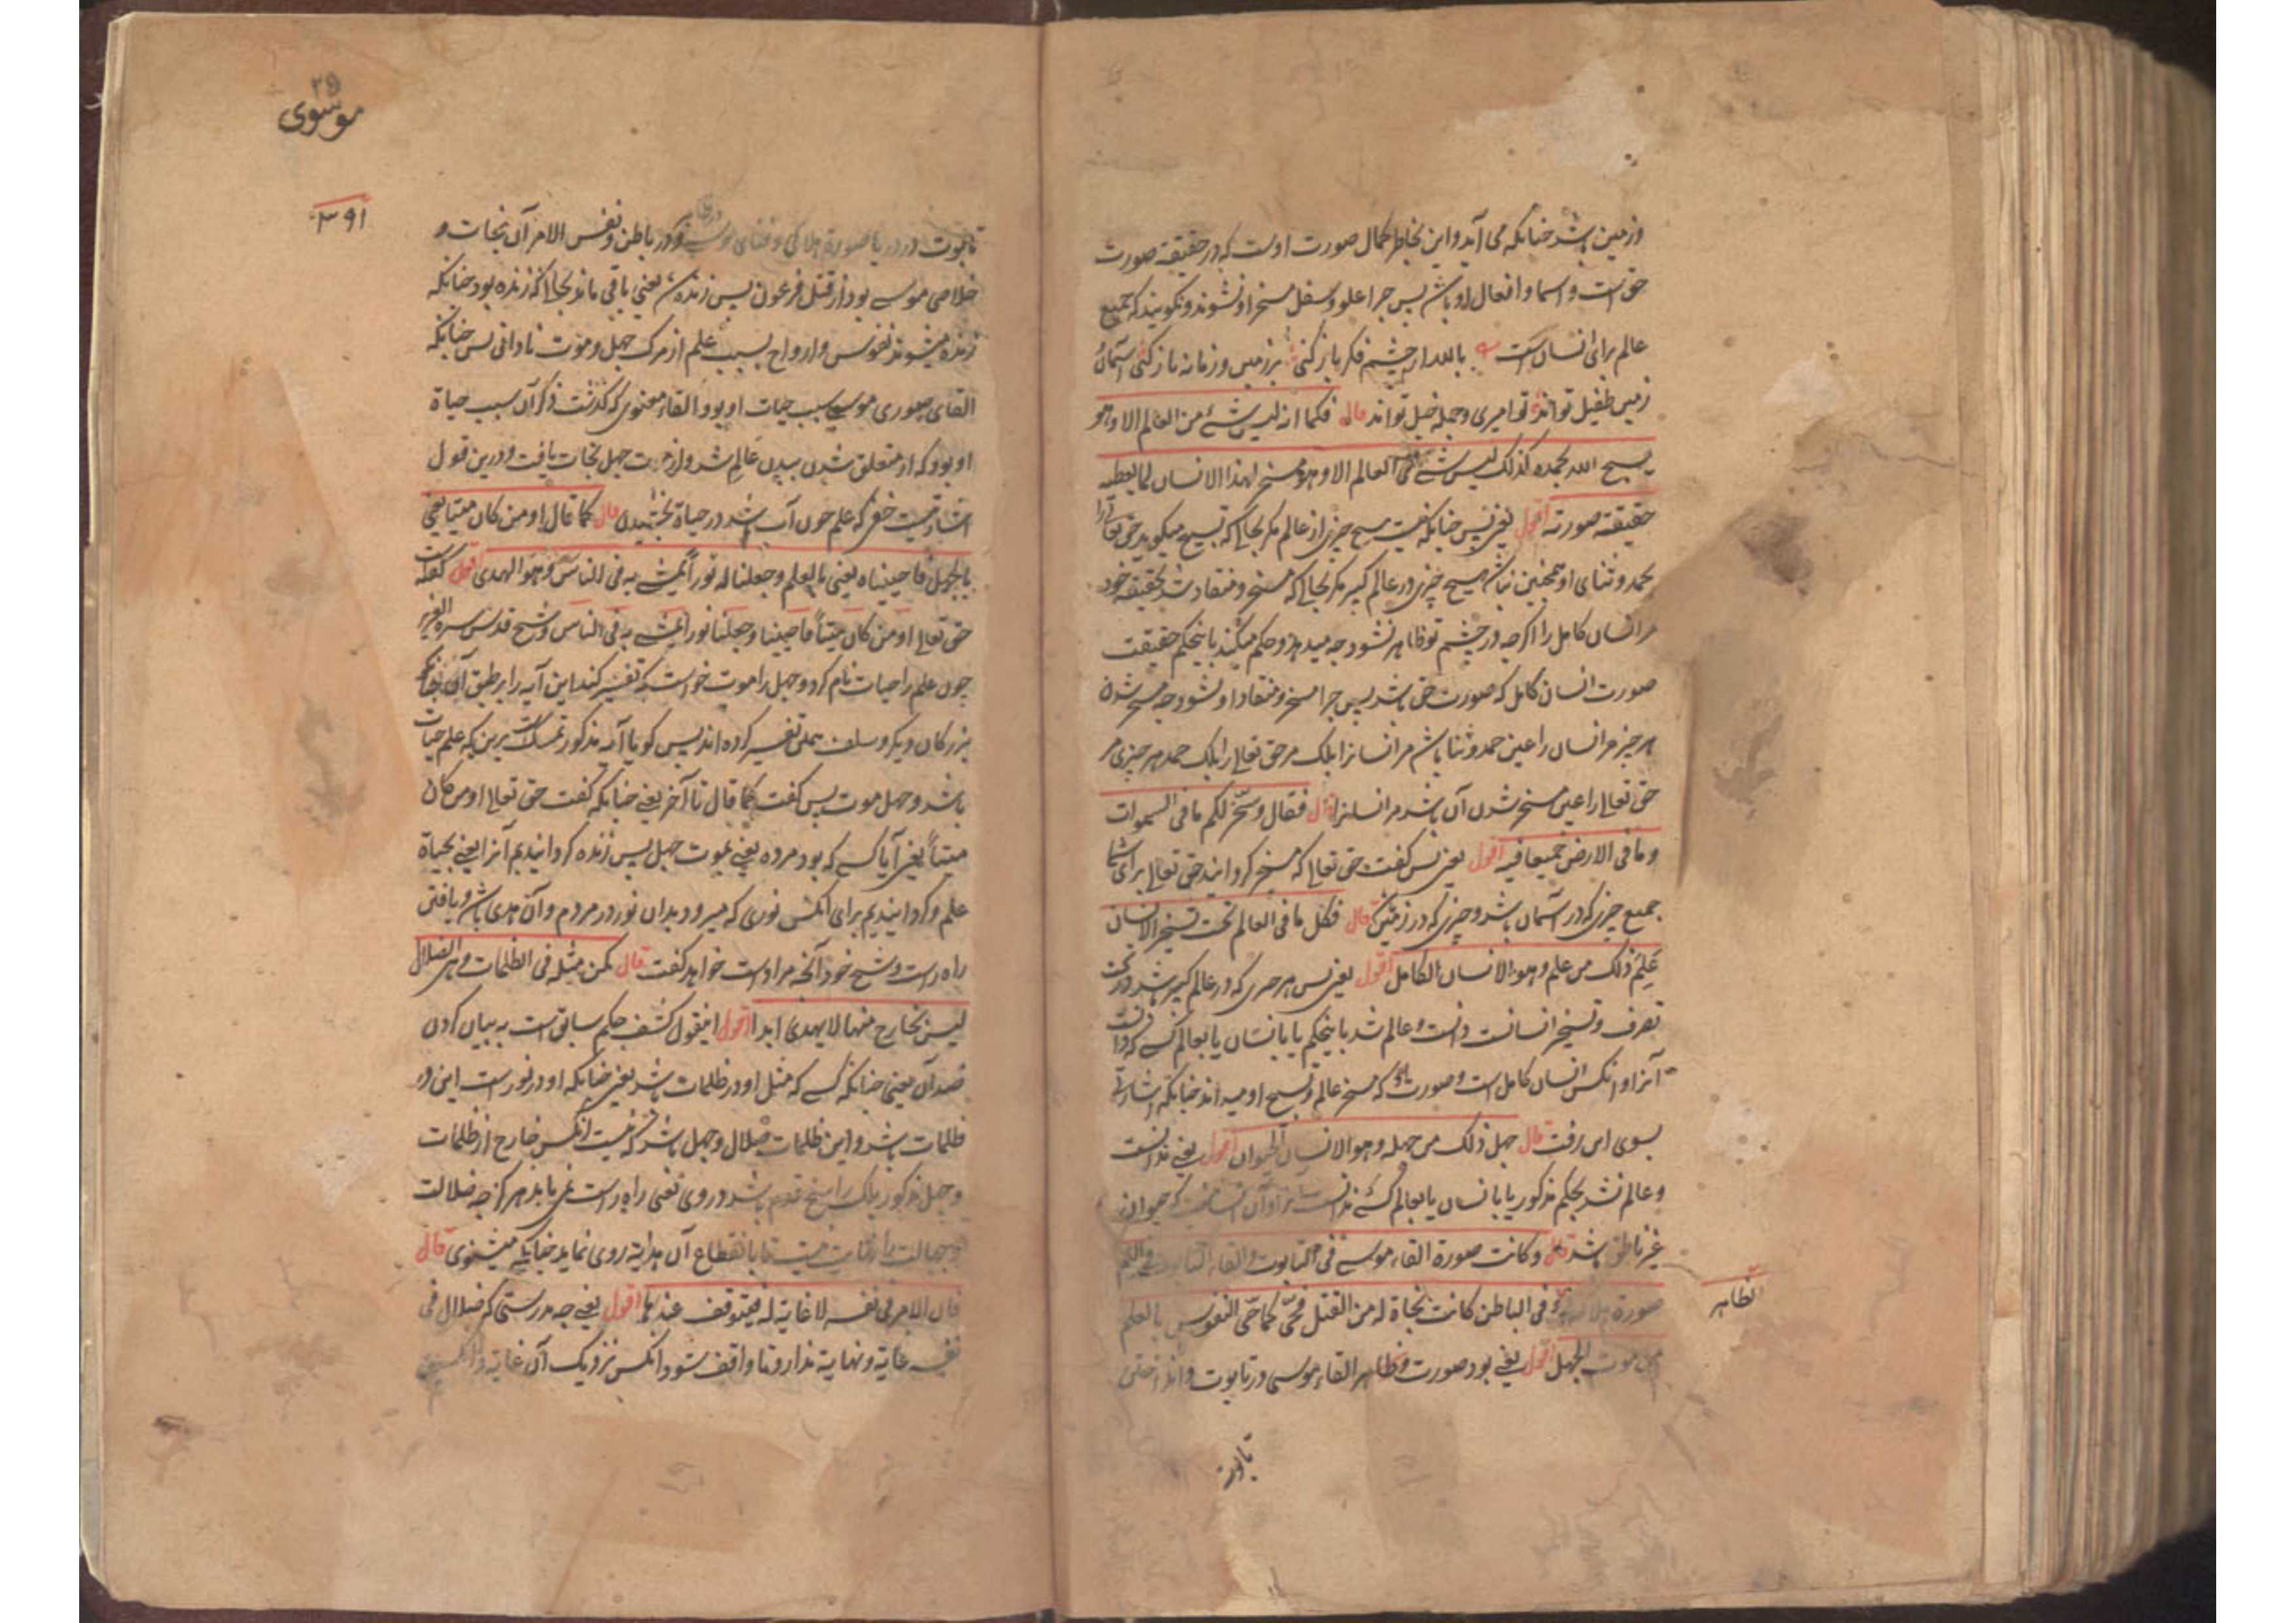 وزمین باشد چنانکه می آید واین بخاطر کمال صورت اوست که در حقیقة صورت
حق است واسما وافعال او باشد پس چرا علو وسفل مسخر او نشوند ونکویند که جمیع
عالم برای انسان است بالله ار چشم فکر باز کنی بر زمین وزمانه ناز کنی آسمان
زمین طفیل تواند تو امیری وجمله خیل تواند قال فکما انه لیس شئ من العالم الا وهو
یسبح الله بحمده کذلک لیس شئ من العالم الا وهو مسخر لهذا الانسان لما یعطیه
حقیقة صورته اقول یعنی پس چنانکه نیست هیچ چیزی از عالم مکر بحالی که تسبیح میکوید حق تعالی را
بحمد وثنای او همچنین نباشد هیچ چیزی در عالم کبیر مکر بحالی که مسخر ومنقاد شد بحقیقة خود
مر انسان کامل را اکرچه در چشم تو ظاهر نشود چه میدهد وحکم میکند باینحکم حقیقت
صورت انسان کامل که صورت حق باشد پس چرا مسخر ومنقاد او نشود چه مسخر شدن
هر چیز مر انسان را عین حمد وثنا باشد مر انسانرا بلک مر حق تعالی را بلک حمد هر چیزی مر
حق تعالی را عین مسخر شدن آن باشد مر انسانرا قال فقال وسخر لکم ما فی السموات
وما فی الارض جمیعا منه اقول یعنی پس کفت حق تعالی که مسخر کردانید حق تعالی برای شما
جمیع چیزی که در آسمان باشد وچیزی که در زمین قال فکل ما فی العالم تحت تسخیر الانسان
علم ذلک من علم وهو الانسان الکامل اقول یعنی پس هر چیزی که در عالم کبیر باشد در تحت
تصرف وتسخیر انسانست دانست وعالم شد باینحکم یا بانسان یا بعالم کسی که دانست
آنرا وآنکس انسان کامل است که مسخر عالم وتسبیح او میداند چنانکه اشارتی
بسوی این رفت قال جهل ذلک من جهله وهو الانسان الحیوان اقول یعنی ندانست
وعالم نشد بحکم مذکور یا بانسان یا بعالم کسی که ندانست آنرا وآن انسانیست که حیوان
غیر ناطق باشد قال وکانت صورة القاء موسی فی التابوت والقاء التابوت فی الیم
صورة هلاک وفی الباطن کانت نجاة له من القتل فحیی کما تحیی النفوس بالعلم
من موت الجهل اقول یعنی بود صورت وظاهر القاء موسی در تابوت وانداختن
الظاهر
تابوت
۲۵
موسوی
۳۹۱
تابوت در دریا صورة هلاکی وفنای موسی ودر باطن ونفس الامر آن نجات و
خلاصی موسی بود از قتل فرعون پس زنده شد یعنی باقی ماند بحالی که زنده بود چنانکه
زنده میشوند نفوس وارواح بسبب علم از مرک جهل وموت نادانی پس چنانکه
القای صوری موسی سبب حیات او بود القاء معنوی که کذشت ذکر آن سبب حیاة
او بود که از متعلق شدن ببدن عالم شد واز موت جهل نجات یافت ودرین قول
اشارتیست خفی که علم چون آب باشد در حیاة بخشیدن قال کما قال او من کان میتا یعنی
بالجهل فاحییناه یعنی بالعلم وجعلنا له نورا یمشی به فی الناس وهو الهدی اقول کفت
حق تعالی او من کان میتا فاحییناه وجعلنا نورا یمشی به فی الناس وشیخ قدس سره العزیز
چون علم را حیات نام کرد وجهل را موت خواست که تفسیر کند این آیه را بر طبق آن چنانکه
بزرکان دیکر وسلف بمعنی تفسیر کرده اند پس کویا آیه مذکور تمسکست برین که علم حیات
باشد وجهل موت پس کفت کما قال تا آخر یعنی چنانکه کفت حق تعالی او من کان
میتا یعنی آیا کسی که بود مرده یعنی بموت جهل پس زنده کردانیدیم آنرا یعنی بحیاة
علم وکردانیدیم برای آنکس نوری که میرود بدان نور در مردم وآن هدی باشد ویافتن
راه راست وشیخ خود آنچه مراد است خواهد کفت قال کمن مثله فی الظلمات وهی الضلال
لیس بخارج منها لا یهدی ابدا اقول اینقول کشف حکم سابق است به بیان کردن
ضد آن یعنی چنانکه کسی که مثل او در ظلمات باشد یعنی چنانکه او در نور است این در
ظلمات باشد واین ظلمات ضلال وجهل باشد که نیست آنکس خارج از ظلمات
وجهل مذکور بلک راسخ قدم باشد در وی یعنی راه راست نمی یابد هرکز چه ضلالت
وجهالت را نهایت نیست تا بانقطاع آن هدایة روی نماید چنانکه میشنوی قال
فان الامر فی نفسه لا غایة له فیتوقف عندها اقول یعنی چه بدرستی که ضلال فی
نفسه غایة ونهایة ندارد تا واقف شود آنکس نزدیک آن غایة